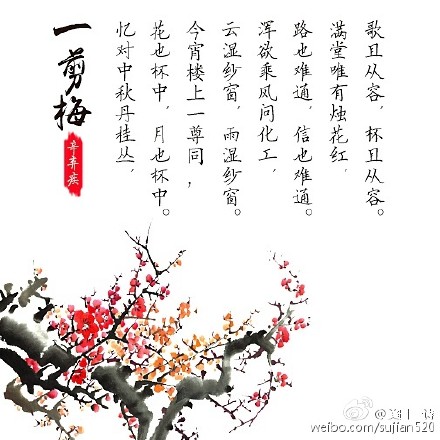 一剪梅
辛弃疾
忆对中秋丹桂丛，
花也杯中，月也杯中。
今宵楼上一尊同，
云湿纱窗，雨湿纱窗。
浑欲乘风问化工，
路也难通，信也难通。
满堂唯有烛花红，
歌且从容，杯且从容。
weibo.com/sujian520